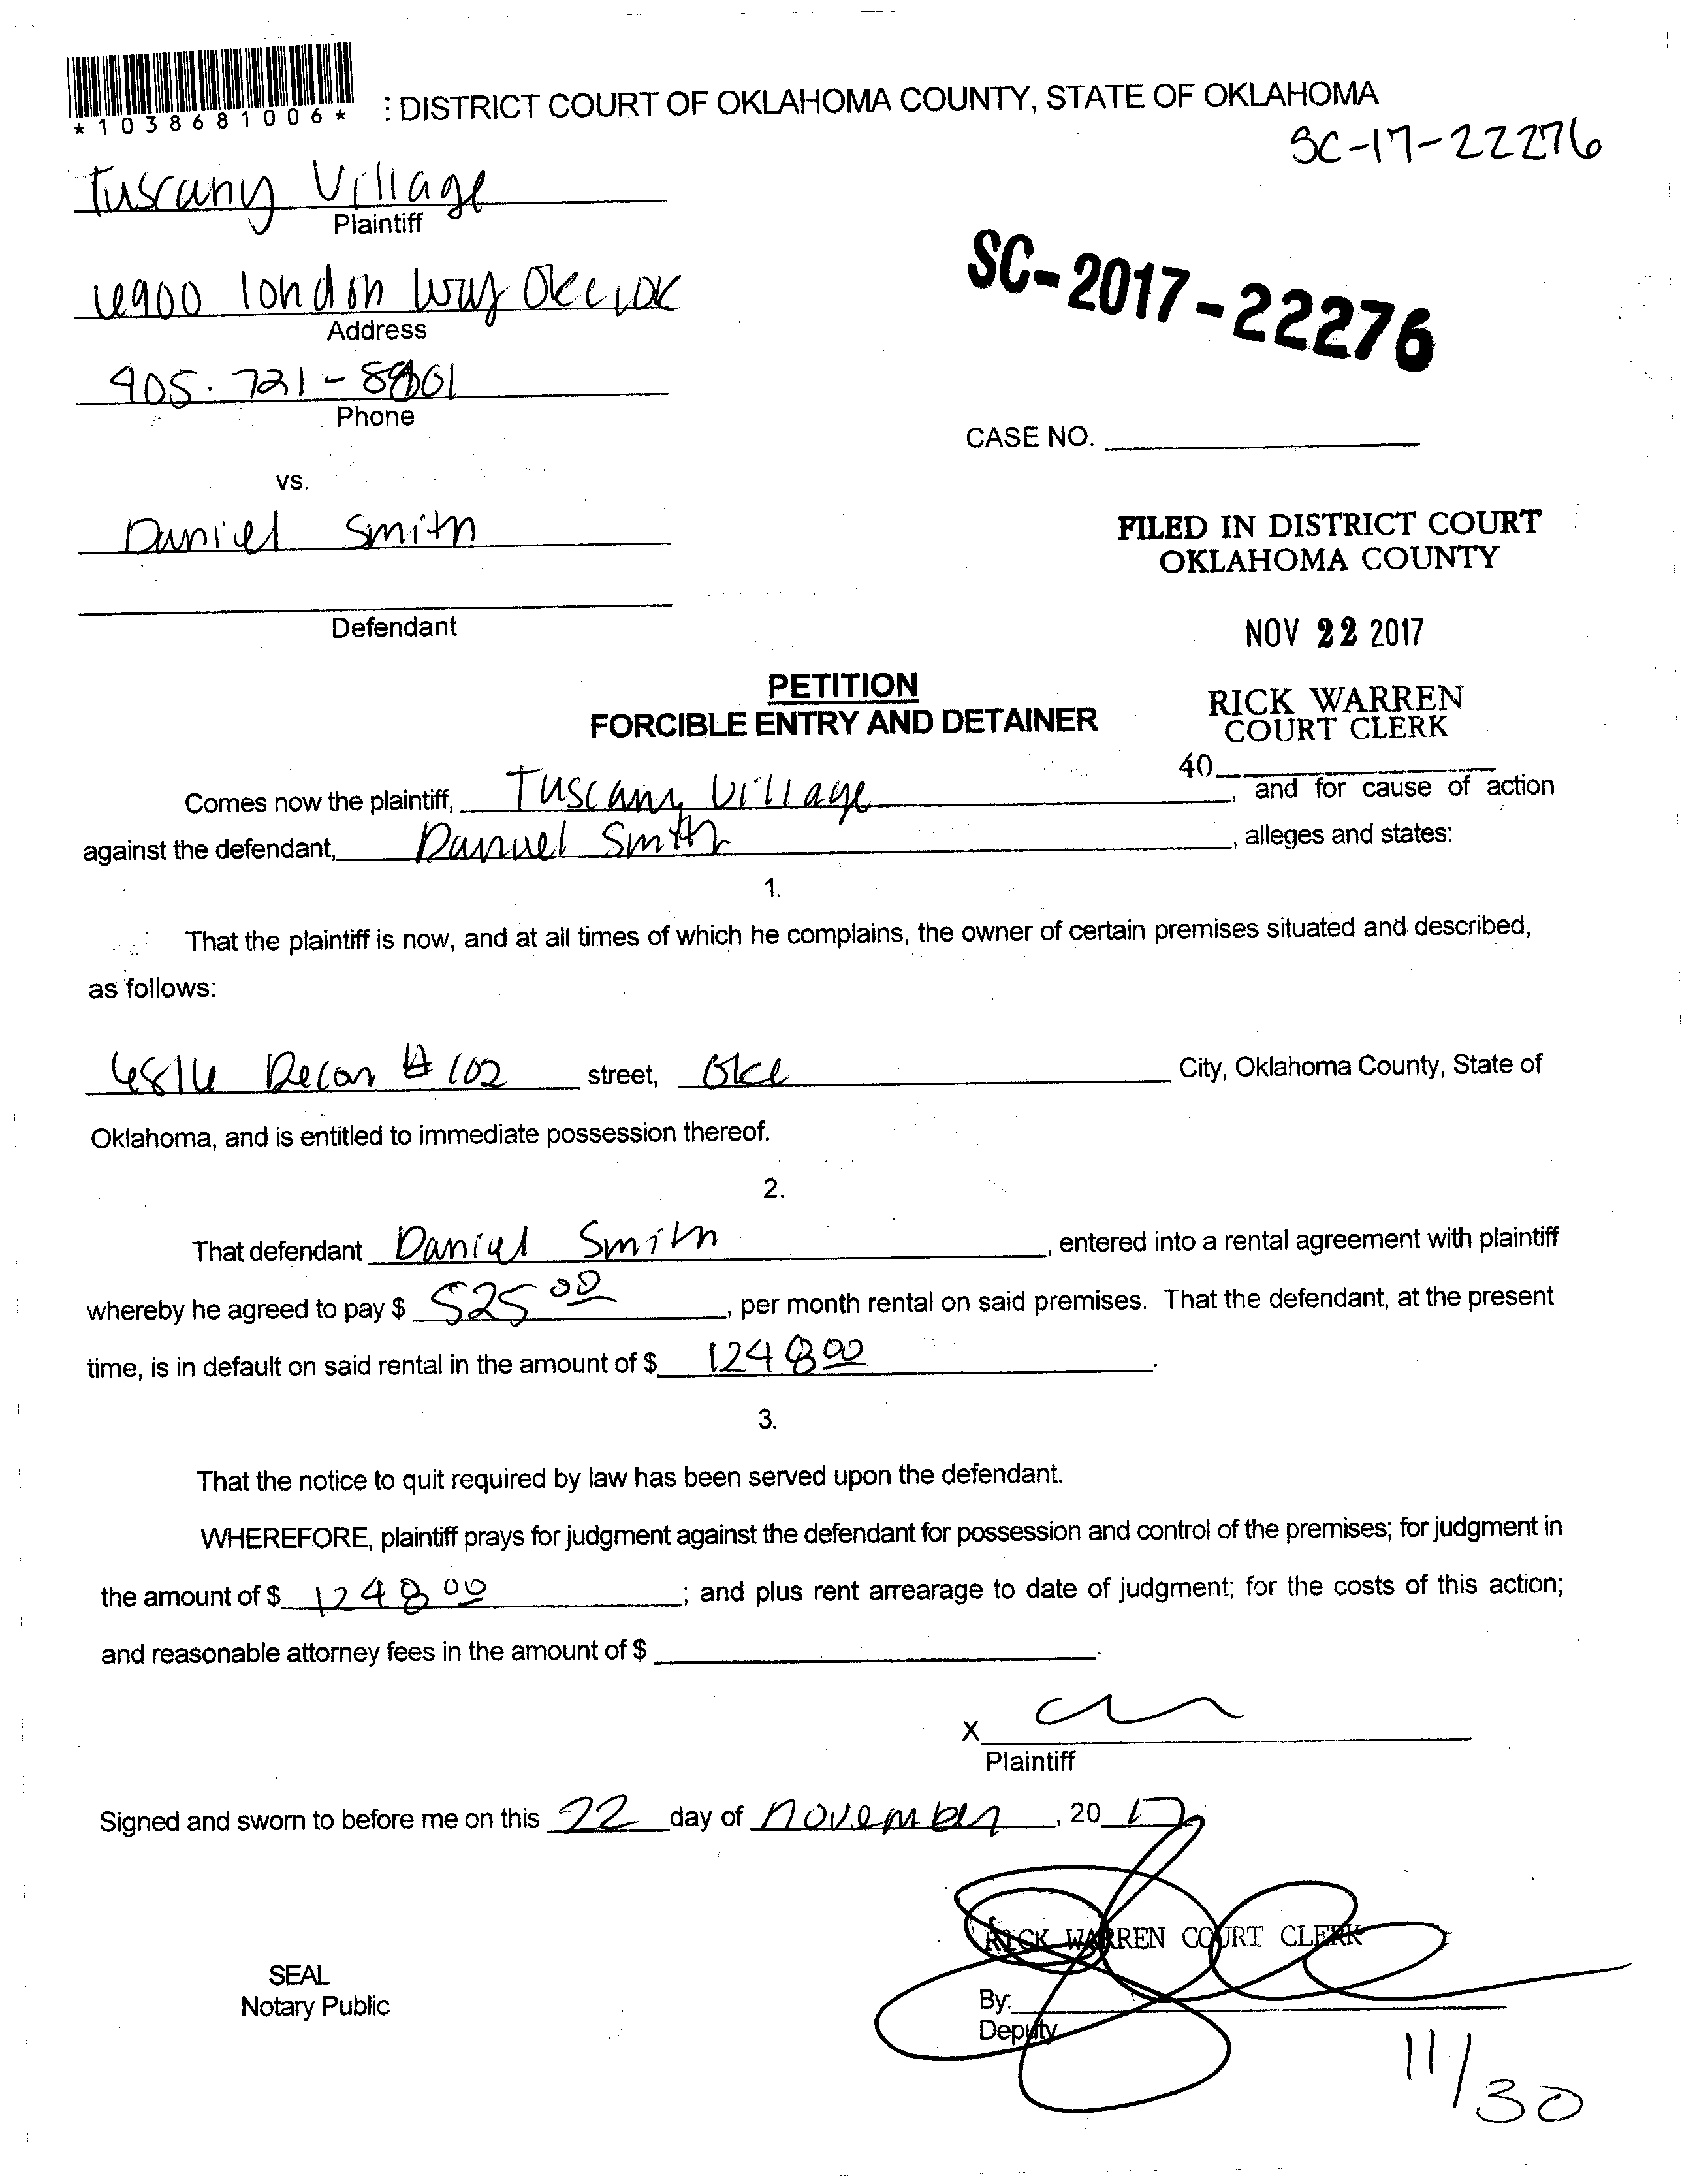 *1038681006*
: DISTRICT COURT OF OKLAHOMA COUNTY, STATE OF OKLAHOMA
SC-17-22276
Tuscany Village
Plaintiff
6900 london Way OKC, OK
Address
SC-2017-22276
405. 721-8801
Phone
CASE NO.
vs.
Daniel Smith
Defendant
FILED IN DISTRICT COURT
OKLAHOMA COUNTY
NOV 22 2017
RICK WARREN
COURT CLERK
40
PETITION
FORCIBLE ENTRY AND DETAINER
Comes now the plaintiff, Tuscany Village, and for cause of action
against the defendant, Daniel Smith, alleges and states:
1.
That the plaintiff is now, and at all times of which he complains, the owner of certain premises situated and described,
as follows:
6816 # 102 street, OKC City, Oklahoma County, State of
Oklahoma, and is entitled to immediate possession thereof.
2.
That defendant Daniel Smith, entered into a rental agreement with plaintiff
whereby he agreed to pay $ 525 00, per month rental on said premises. That the defendant, at the present
time, is in default on said rental in the amount of $ 1248 00.
3.
That the notice to quit required by law has been served upon the defendant.
WHEREFORE, plaintiff prays for judgment against the defendant for possession and control of the premises; for judgment in
the amount of $ 1248 00; and plus rent arrearage to date of judgment; for the costs of this action;
and reasonable attorney fees in the amount of $ .
X
Plaintiff
Signed and sworn to before me on this 22 day of November, 20 17
RICK WARREN COURT CLERK
SEAL
Notary Public
By:
Deputy
11/30